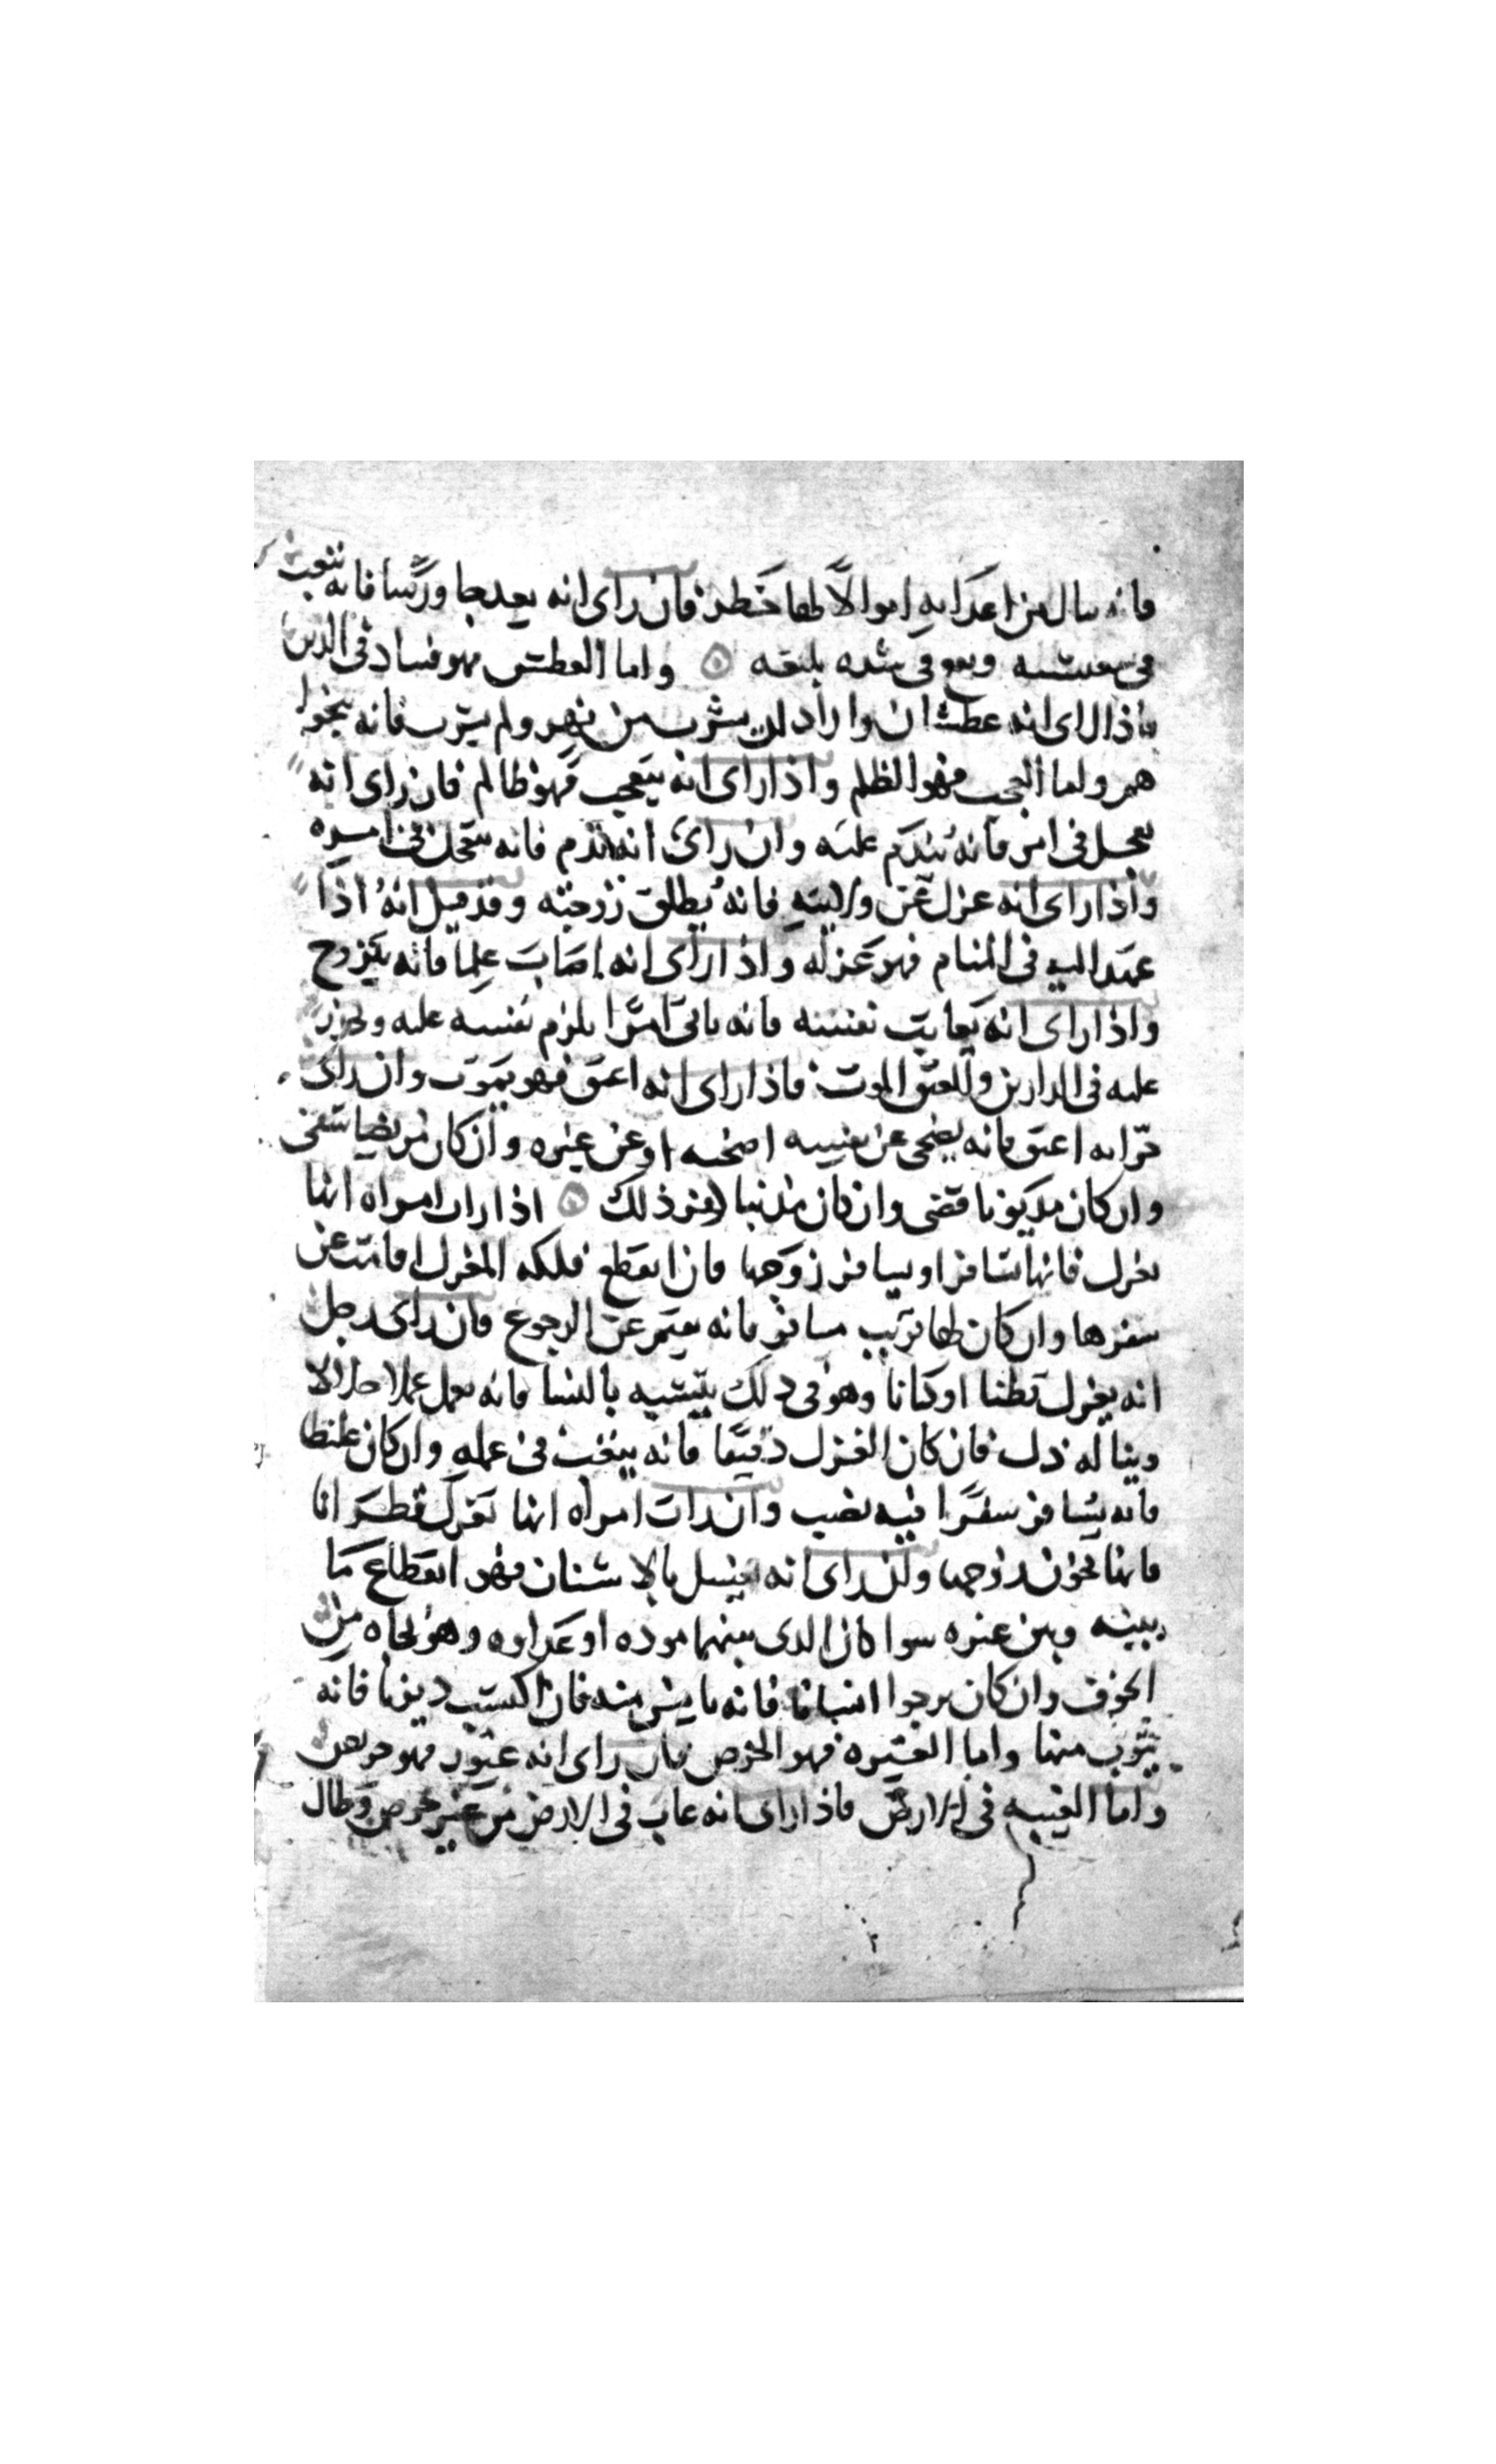 فانه ينال من اعدايه اموالا لها خطر فان راى انه يعد بها ورسا فانه يتعب
فى معيشته ويقع فى شده بلیغه ۞ واما العطش فهو فساد فى الدين
فاذا راى انه عطشان واراد ان يشرب من نهر ولم يشرب فانه ينجوا
هم واما العجب فهو الظلم واذا راى انه يتعجب فهو ظالم فان راى انه
يعجل فى امر فانه يندم عليه وان راى انه ندم فانه يتعجل فى امره
واذا راى انه عزل عن ولايته فانه يطلق زوجته وقد قيل انه اذا
عهد اليه فى المنام فهو عزله واذا راى انه اصاب علما فانه يتزوج
واذا راى انه يعاتب نفسه فانه ياتى امرا يلزم نفسه عليه
عليه فى الدارين والعتق الموت فاذا راى انه اعتق فهو يموت وان راى
حرا انه اعتق فانه يضحى عن نفسه اضحيه او عن غيره وان كان مريضا شفى
وان كان مديونا قضى وان كان مذنبا ذلك ۞ اذا رات امراه انها
تغزل فانها تسافر او يسافر زوجها فان انقطع فلكه المغزل اقامت عن
سفرها وان كان لها قريب مسافر فانه يقيم عن الرجوع فان راى رجل
انه يغزل قطنا او كتانا وهو فى ذلك يتشبه بالنسا فانه يعمل عملا حلالا
ويناله ذل فان كان الغزل دقيقا فانه فى عمله وان كان غليظا
فانه يسافر سفرا فيه نصب وان رات امراه انها تغزل قطرانا
فانها تخون زوجها وان راى انه يغسل بالاشنان فهو انقطاع ما
بينه وبين غيره سوا كان الذى بينهما موده او عداوه وهو نجاه من
الخوف وان كان يرجوا انسانا فانه يايس منه فان اكتسب ذنوبا فانه
يتوب منها واما الغيره فهو الحرص فان راى انه غيور فهو حريص
واما الغيبه فى الارض فاذا راى انه غاب فى الارض من غير وطال